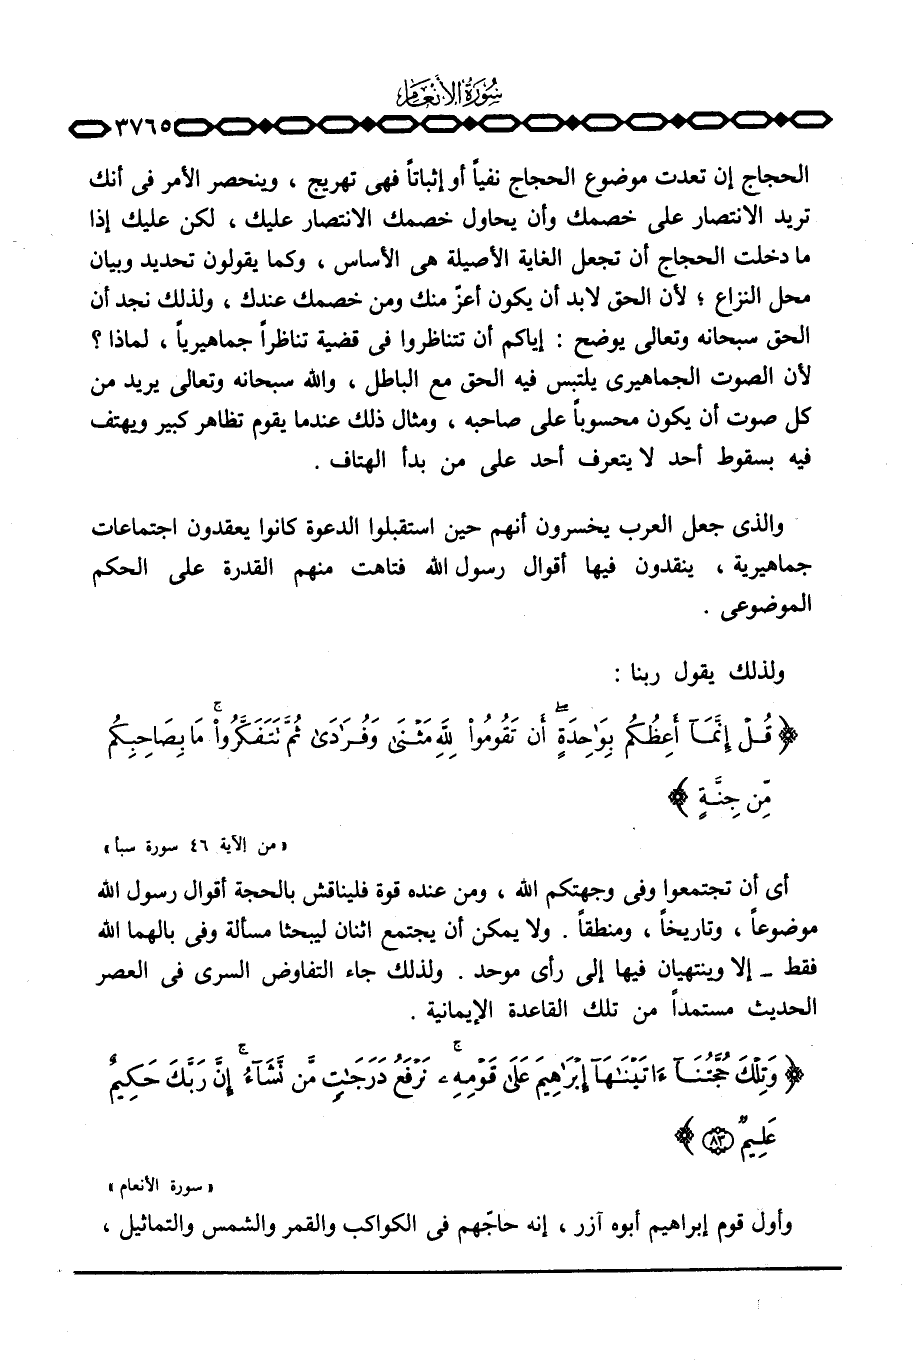 سورة الأنعام
٣٧٦٥
الحجاج إن تعدت موضوع الحجاج نفياً أو إثباتاً فهى تهريج ، وينحصر الأمر فى أنك
تريد الانتصار على خصمك وأن يحاول خصمك الانتصار عليك ، لكن عليك إذا
ما دخلت الحجاج أن تجعل الغاية الأصيلة هى الأساس ، وكما يقولون تحديد وبيان
محل النزاع ؛ لأن الحق لابد أن يكون أعزّ منك ومن خصمك عندك ، ولذلك نجد أن
الحق سبحانه وتعالى يوضح : إياكم أن تتناظروا فى قضية تناظراً جماهيرياً ، لماذا ؟
لأن الصوت الجماهيرى يلتبس فيه الحق مع الباطل ، والله سبحانه وتعالى يريد من
كل صوت أن يكون محسوباً على صاحبه ، ومثال ذلك عندما يقوم تظاهر كبير ويهتف
فيه بسقوط أحد لا يتعرف أحد على من بدأ الهتاف .
والذى جعل العرب يخسرون أنهم حين استقبلوا الدعوة كانوا يعقدون اجتماعات
جماهيرية ، ينقدون فيها أقوال رسول الله فتاهت منهم القدرة على الحكم
الموضوعى .
ولذلك يقول ربنا :
﴿ قُلْ إِنَّمَآ أَعِظُكُم بِوَٰحِدَةٍ ۖ أَن تَقُومُوا۟ لِلَّهِ مَثْنَىٰ وَفُرَٰدَىٰ ثُمَّ تَتَفَكَّرُوا۟ ۚ مَا بِصَاحِبِكُم
مِّن جِنَّةٍ ﴾
« من الآية ٤٦ سورة سبأ »
أى أن تجتمعوا وفى وجهتكم الله ، ومن عنده قوة فليناقش بالحجة أقوال رسول الله
موضوعاً ، وتاريخاً ، ومنطقاً . ولا يمكن أن يجتمع اثنان ليبحثا مسألة وفى بالهما الله
فقط ــ إلا وينتهيان فيها إلى رأى موحد . ولذلك جاء التفاوض السرى فى العصر
الحديث مستمداً من تلك القاعدة الإيمانية .
﴿ وَتِلْكَ حُجَّتُنَآ ءَاتَيْنَٰهَآ إِبْرَٰهِيمَ عَلَىٰ قَوْمِهِۦ ۚ نَرْفَعُ دَرَجَٰتٍ مَّن نَّشَآءُ ۗ إِنَّ رَبَّكَ حَكِيمٌ
عَلِيمٌ ٨٣ ﴾
« سورة الأنعام »
وأول قوم إبراهيم أبوه آزر ، إنه حاجّهم فى الكواكب والقمر والشمس والتماثيل ،